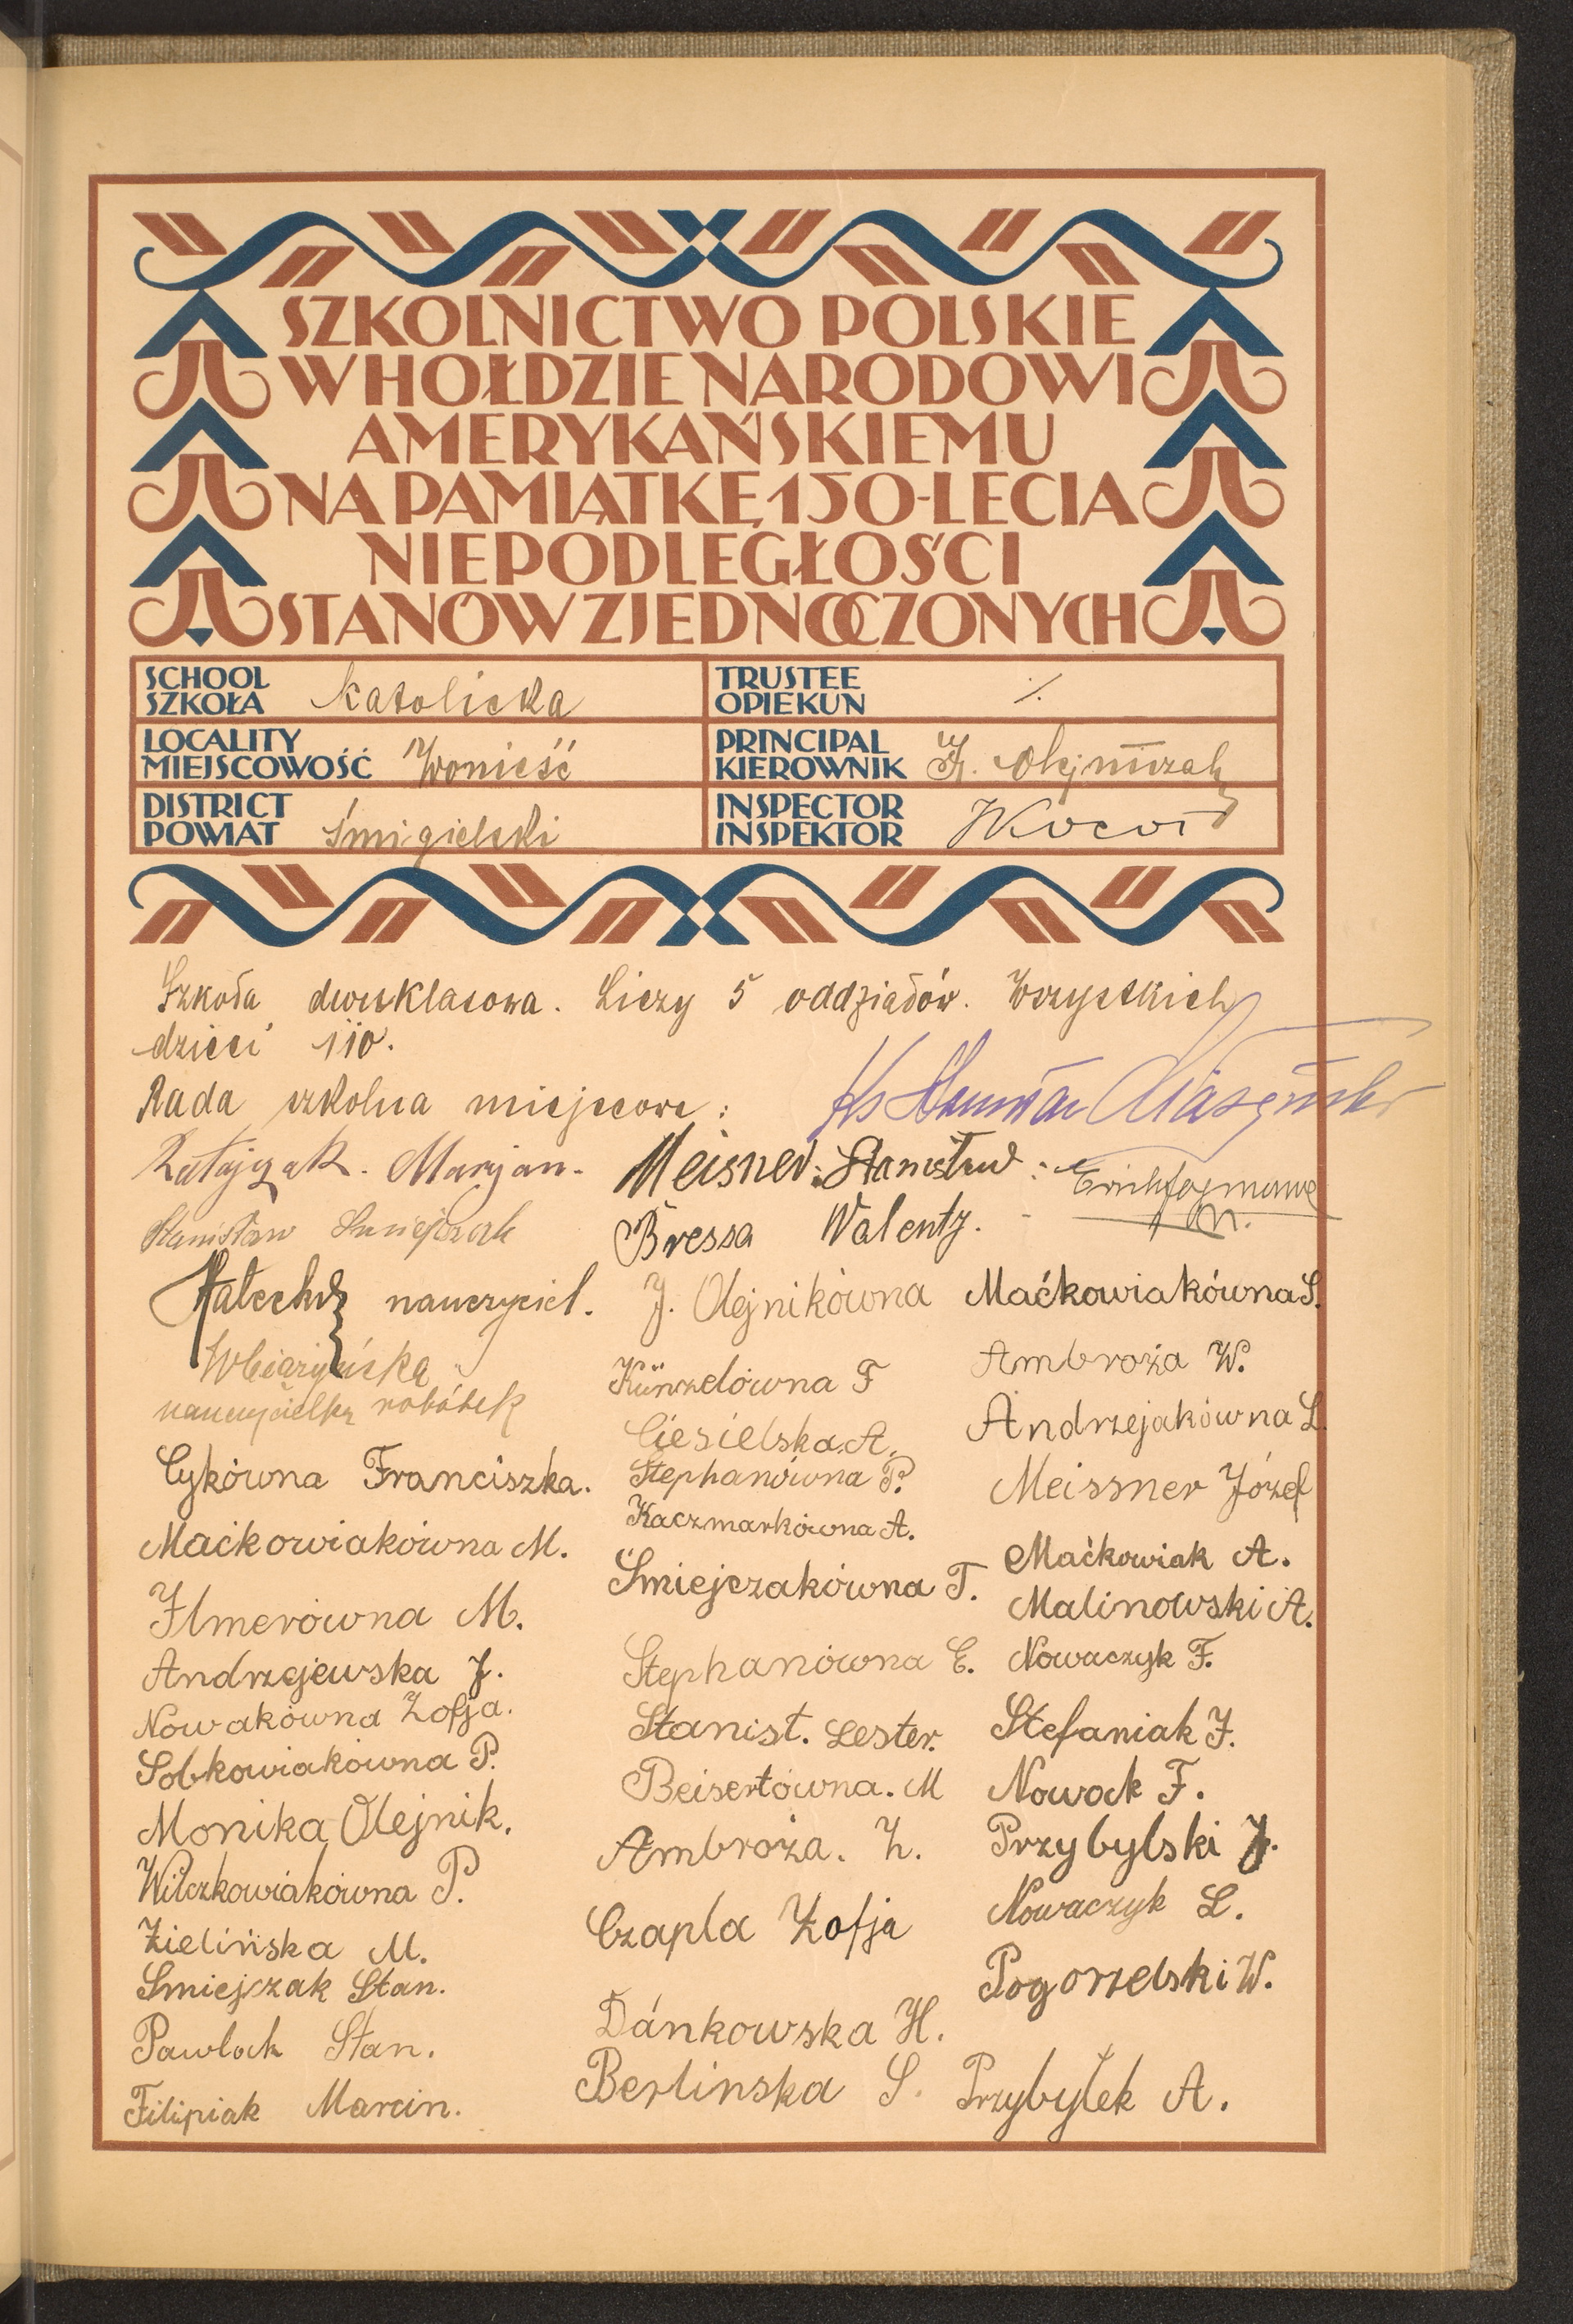 SZKOLNICTWO POLSKIE
W HOŁDZIE NARODOWI
AMERYKAŃSKIEMU
NA PAMIĄTKĘ 150-LECIA
NIEPODLEGŁOŚCI
STANÓW ZJEDNOCZONYCH
SCHOOL
SZKOŁA Katolicka
TRUSTEE
OPIEKUN ·/.
LOCALITY
MIEJSCOWOŚĆ Wonieść
PRINCIPAL
KIEROWNIK Olejniczak
DISTRICT
POWIAT Śmigielski
INSPECTOR
INSPEKTOR
Szkoła dwuklasowa. Liczy 5 oddziałów. Wszystkich
dzieci 110.
Rada szkolna miejscowa:
Ratajczak. Marjan.
Meisner. Stanisław
Stanisław Śmiejczak
Bressa Walenty.
nauczyciel.
nauczycielka robótek
Cykówna Franciszka.
Maćkowiakówna M.
Ilmerówna M.
Andrzejewska J.
Nowakówna Zofja.
Sobkowiakówna P.
Monika Olejnik.
Wilczkowiakówna P.
Zielińska M.
Smiejczak Stan.
Pawlock Stan.
Filipiak Marcin.
J. Olejnikówna
Künzelówna F
Ciesielska A.
Stephanówna P.
Kaczmarkówna A.
Śmiejczakówna T.
Stephanówna E.
Stanist. Lester.
Beisertówna. M
Ambroża. Z.
Czapla Zofja
Dánkowska H.
Berlinska S.
Maćkowiakówna S.
Ambroża W.
Andrzejakówna L.
Meissner Józef
Maćkowiak A.
Malinowski A.
Nowaczyk F.
Stefaniak J.
Nowack F.
Przybylski J.
Nowaczyk L.
Pogorzelski W.
Przybyłek A.